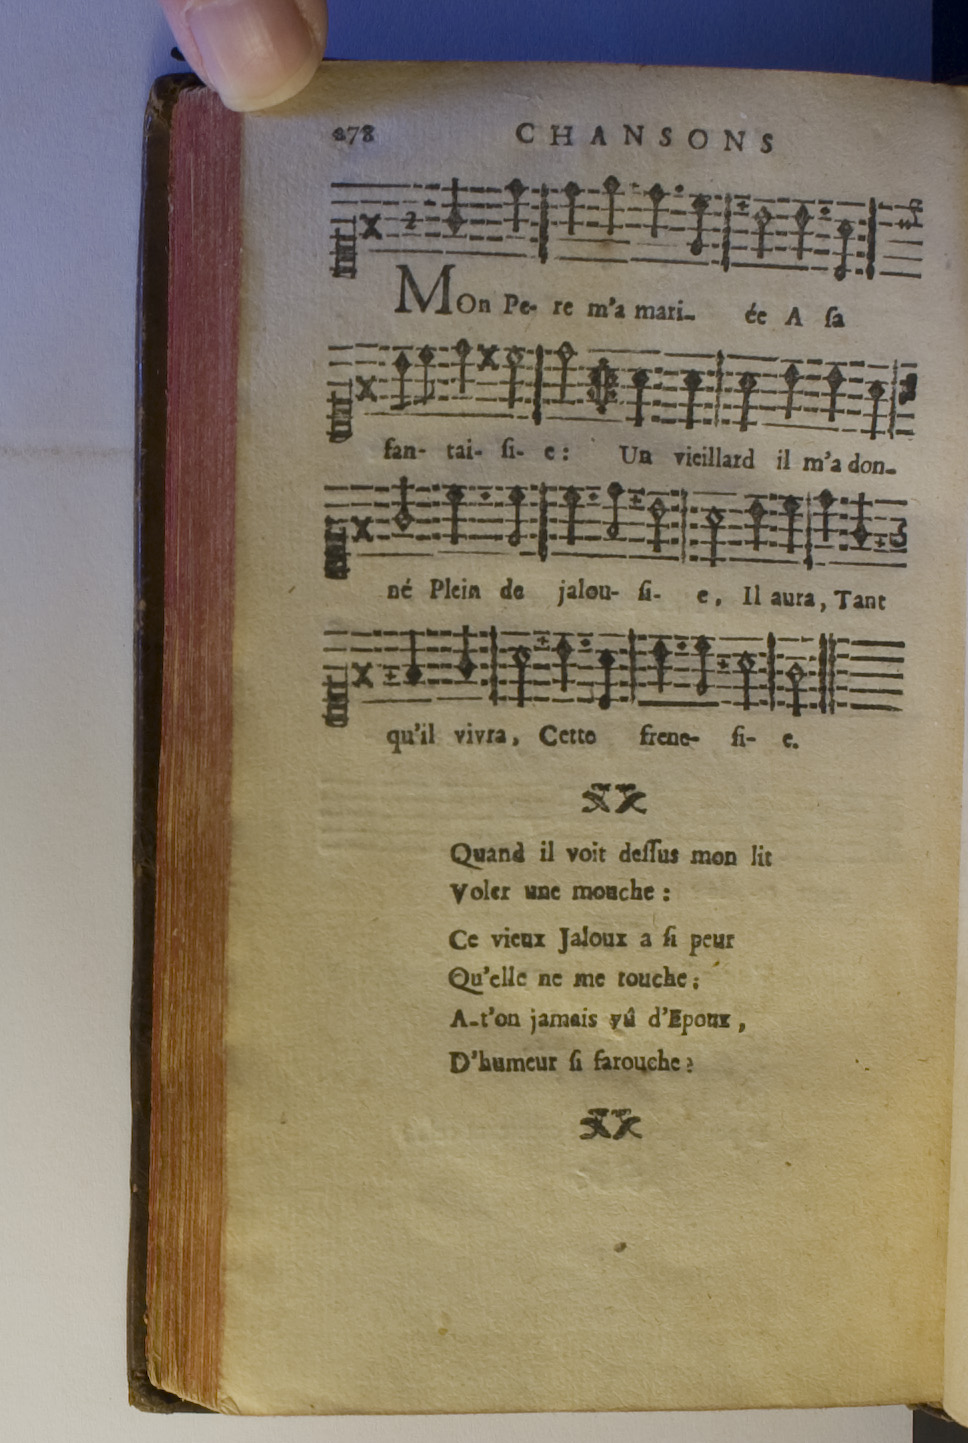 278 CHANSONS
MOn Pe- re m'a mari- ée A sa
fan- tai- si- e: Un vieillard il m'a don-
né Plein de jalou- si- e, Il aura, Tant
qu'il vivra, Cette frene- si- e.
Quand il voit dessus mon lit
Voler une mouche:
Ce vieux Jaloux a si peur
Qu'elle ne me touche;
A-t'on jamais vû d'Epoux,
D'humeur si farouche?